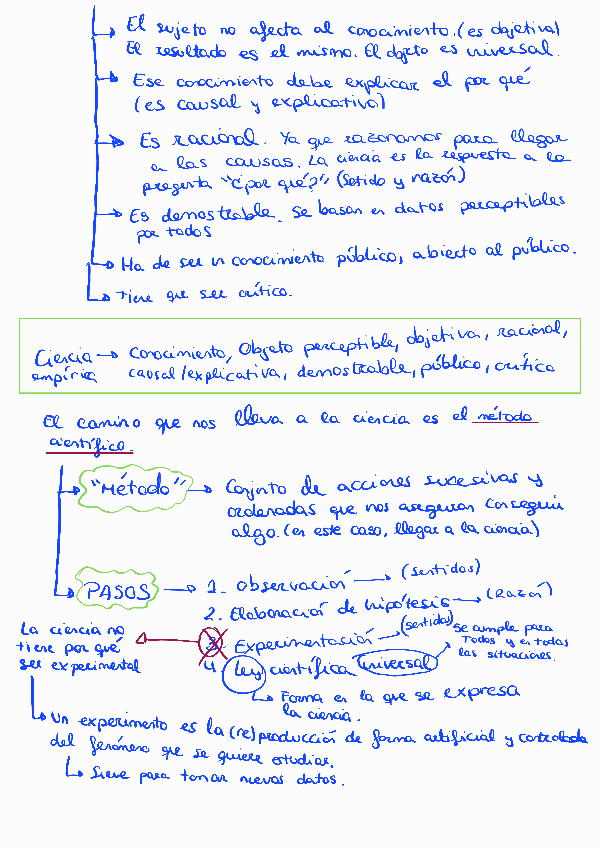 El sujeto no afecta al conocimiento. (es objetiva)
El resultado es el mismo. El objeto es universal.
Ese conocimiento debe explicar el por qué
(es causal y explicativa)
Es racional. Ya que razonamos para llegar
en las causas. La ciencia es la respuesta a la
pregunta "¿por qué?" (Setido y razón)
Es demostrable. Se basan en datos perceptibles
por todos
Ha de ser un conocimiento público, abiecto al público.
Tiene que ser crítico.
Ciencia → conocimiento, Objeto perceptible, objetiva, racional,
empírica causal/explicativa, demostrable, público, crítica
El camino que nos lleva a la ciencia es el método
científico.
"Método" → Conjunto de acciones sucesivas y
ordenadas que nos aseguran conseguir
algo. (en este caso, llegar a la ciencia)
PASOS → 1. Observación → (sentidos)
2. Elaboración de hipótesis → (Razón)
3. Experimentación → (sentidos)
4. Ley científica universal → Se cumple para
todos y en todas
las situaciones.
Forma en la que se expresa
la ciencia.
La ciencia no
tiene por qué
ser experimental
Un experimento es la (re)producción de forma artificial y controlada
del fenómeno que se quiere estudiar.
Sirve para tomar nuevos datos.